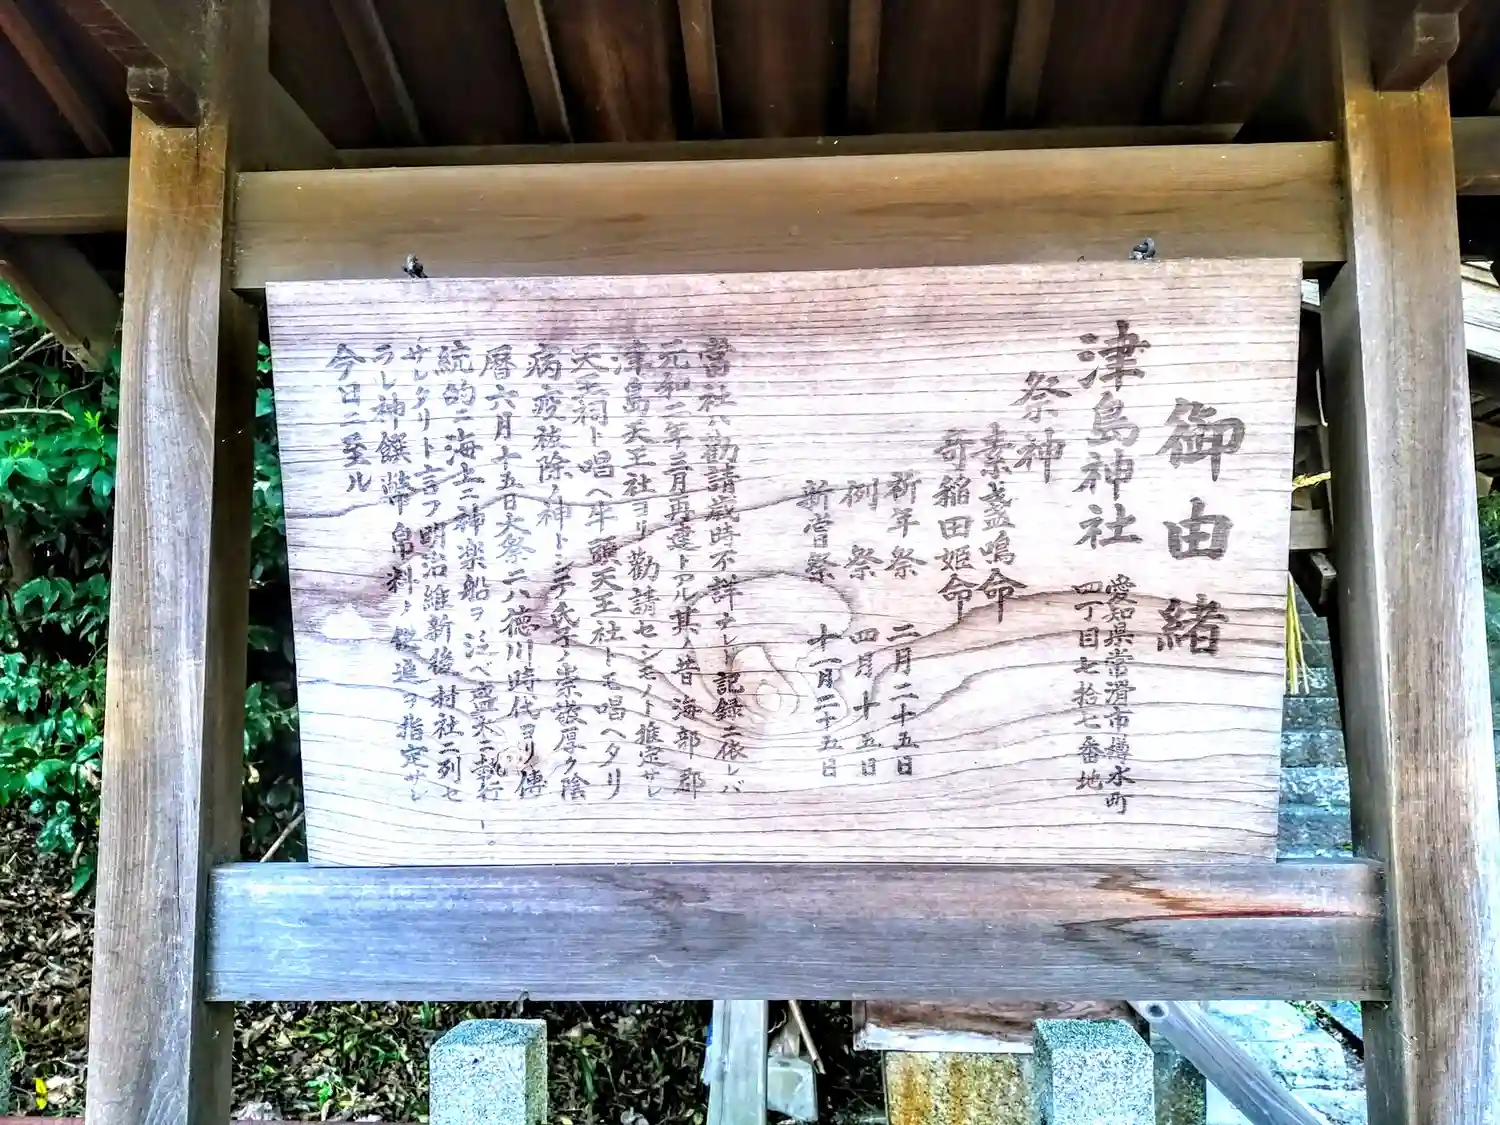 御由緒
津島神社
愛知県常滑市樽水町
四丁目七拾七番地
祭神
素盞嗚命
奇稲田姫命
祈年祭 二月二十五日
例祭 四月十五日
新嘗祭 十一月二十五日
當社ハ勧請歳時不詳ナレド記録ニ依レバ
元和二年三月再建トアル其ノ昔海部郡
津島天王社ヨリ勧請セシモノト推定サレ
天王祠ト唱ヘ牛頭天王社トモ唱ヘタリ
病疫祓除ノ神トシテ氏子ノ崇敬厚ク陰
暦六月十五日大祭ニハ徳川時代ヨリ傳
統的ニ海上ニ神楽船ヲ泛ベ盛大ニ執行
サレタリト言フ明治維新後村社ニ列セ
ラレ神饌幣帛料ノ供進ヲ指定サレ
今日ニ至ル